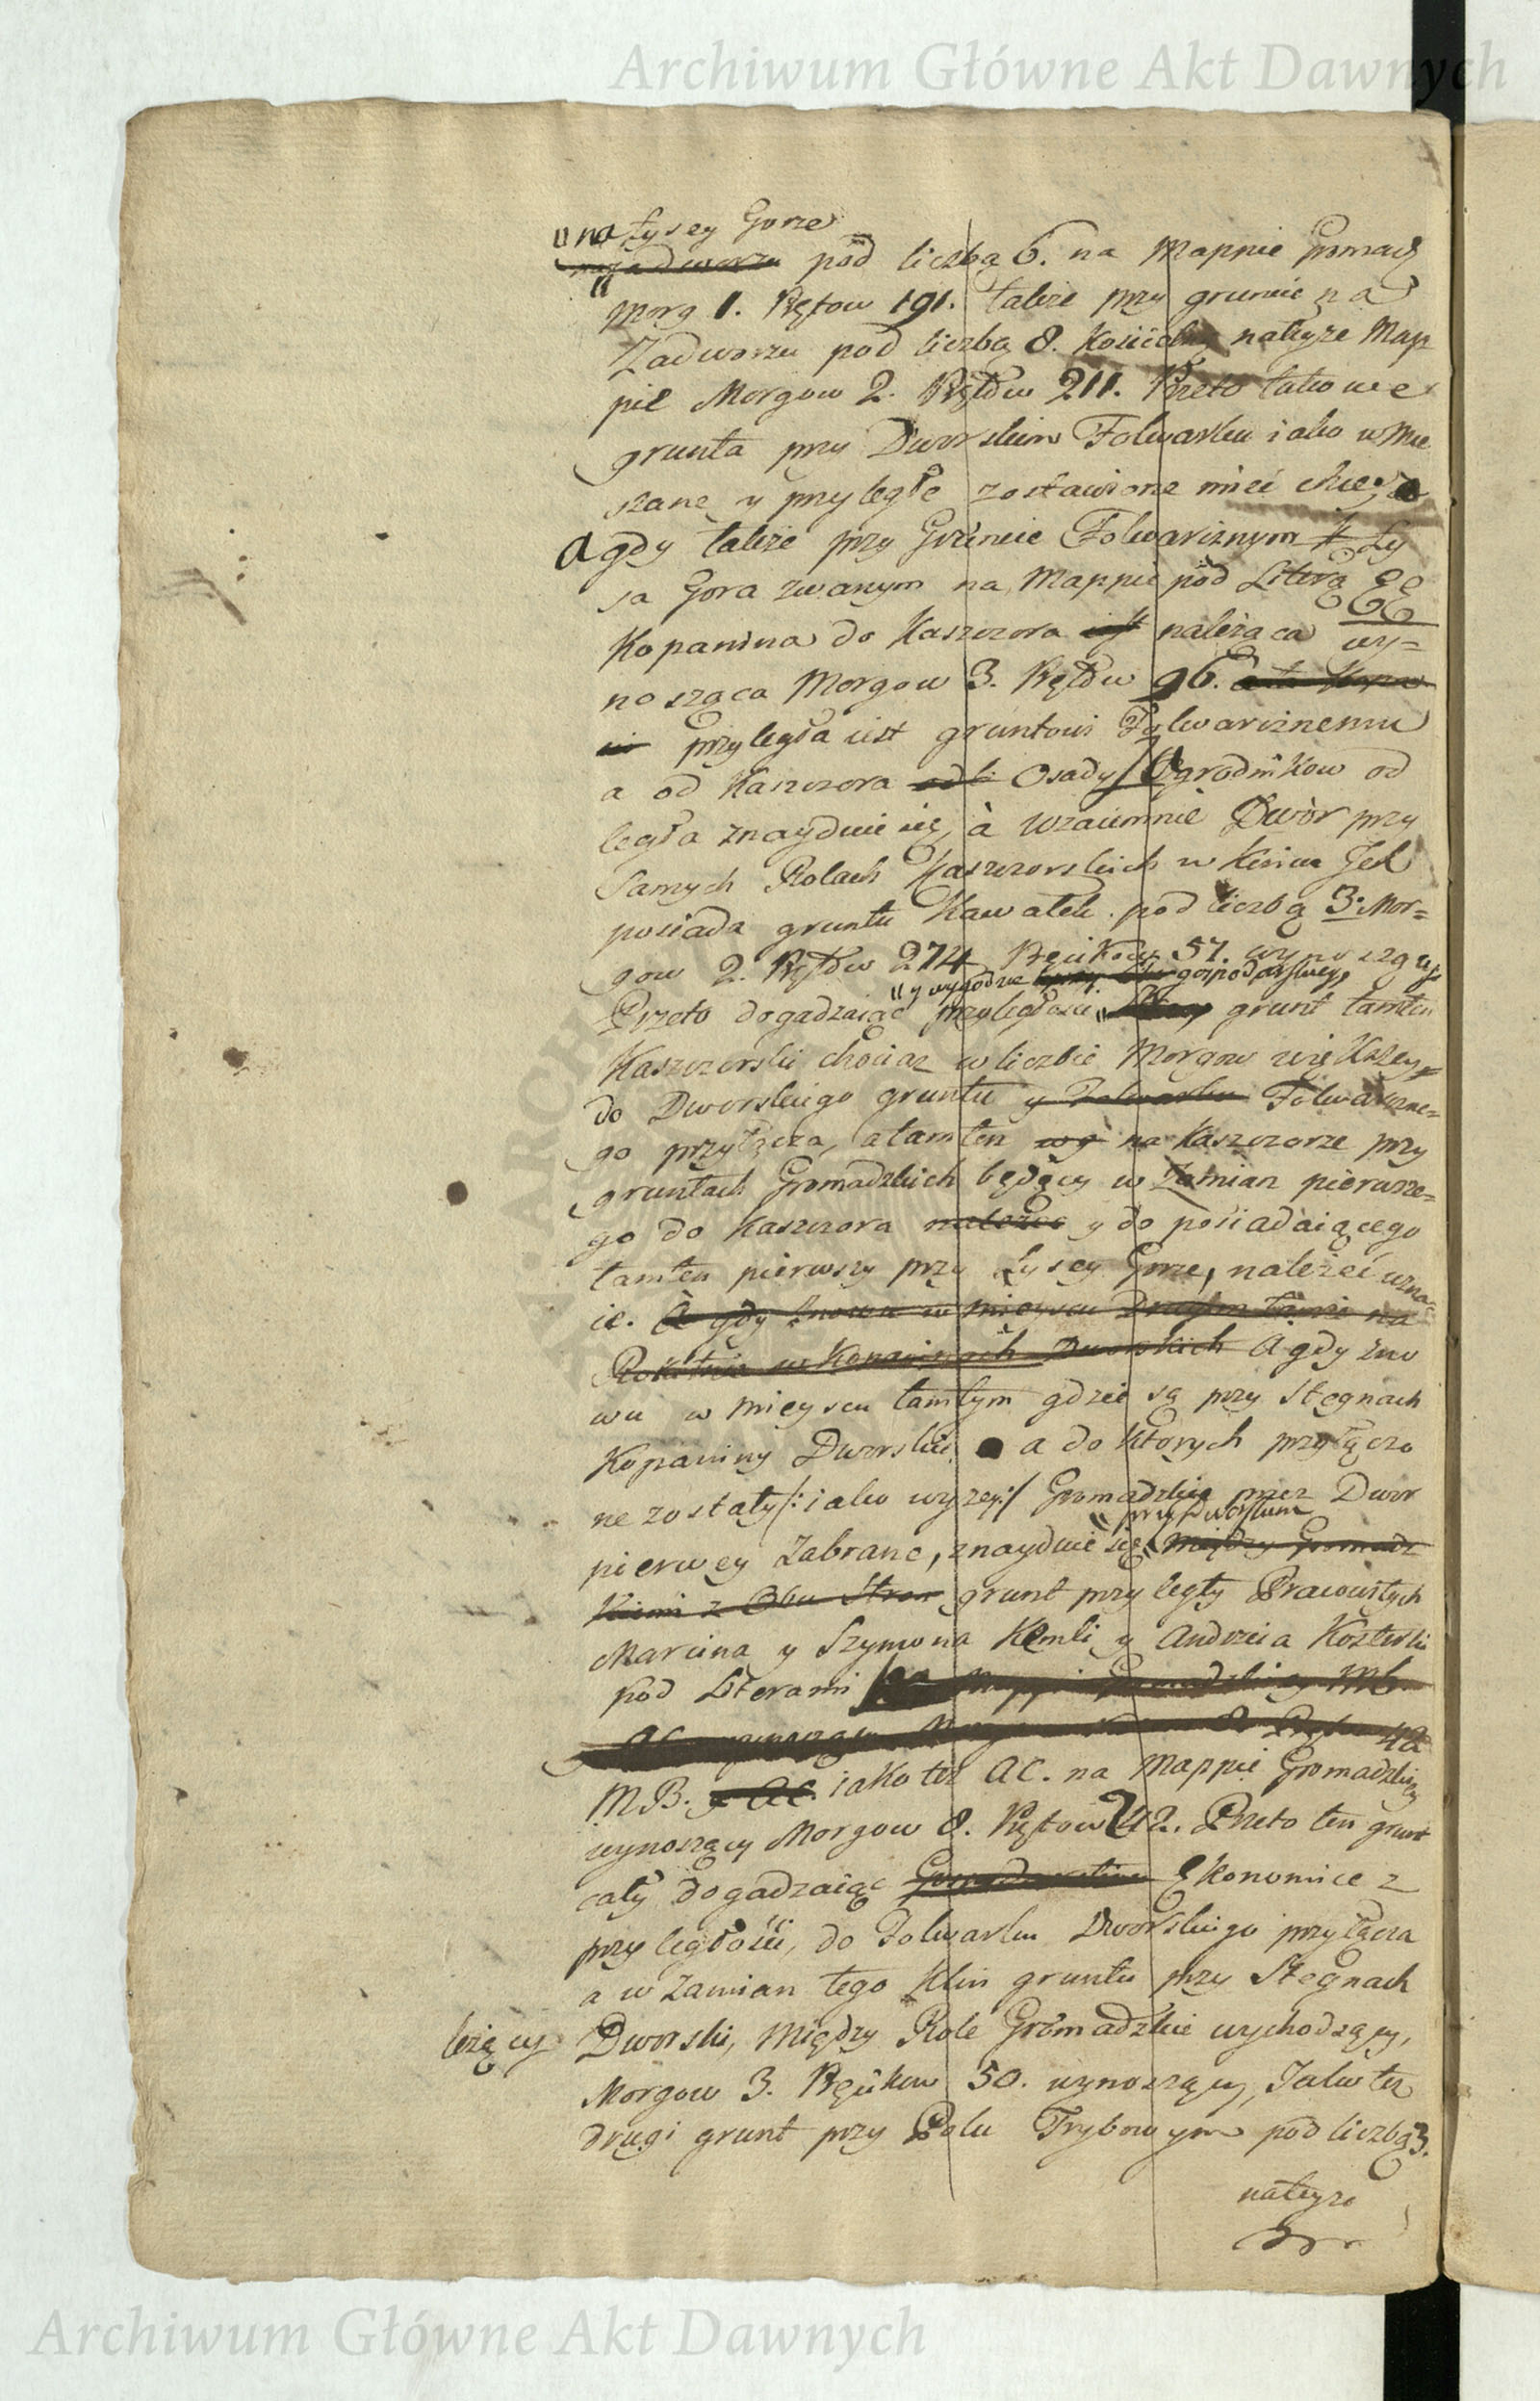 Archiwum Główne Akt Dawnych
"na Łysey Gorze
na Zadworzu pod liczbą 6. na Mappie Gromadz
Morg 1. Prętow 191. także przy gruncie na
Zadworzu pod liczbą 8. Kościelny nateyże Map
pie Morgow 2. Prętow 211. Przeto takowe
grunta przy Dworskim Folwarku iako w mie
szane y przyległe zostawione mieć chce,
a gdy także przy Gruncie Folwarcznym Ły
sa Gora zwanym na Mappie pod Literą
Kopanina do Kaszczora należąca wy=
nosząca Morgow 3. Prętow 96.
przyległa iest gruntowi Folwarcznemu
a od Kaszczora Osady Ogrodnikow od
legła znayduie się, à wzaiemnie Dwór przy
Samych Rolach Kaszczorskich w Końcu Jeh
posiada gruntu Kawałek pod liczbą 3. Mor=
gow 2. Prętow 274 Pręcikow 57. wynoszący
"y wygodzie gospodarskiey
Przeto dogadzaiąc przyległości grunt tamten
Kaszczorski chociaz w liczbie Morgow większey=
do Dworskiego gruntu y Folwarku Folwarczne=
go przyłącza, a tamten na Kaszczorze przy
gruntach Gromadzkich będący w Zamian pierwsze=
go do Kaszczora należeć y do posiadaiącego
tamten pierwszy przy Łysey Gorze, należeć uzna
ie. A gdy znowu w mieyscu Drugim tamże na
Kopaninach Dworskich A gdy zno
wu w mieyscu tamtym gdzie są przy Stegnach
Kopaniny Dworskie a do ktorych przyłączo
ne zostały /: iako wyzey :/ Gromadzkie przez Dwor
"przy Dworskim
pierwey Zabrane, znayduie się między Gromadz
kiemi z Obu Stron grunt przyległy Pracowitych
Marcina y Szymona Kemli y Andrzeia Kozterki
pod Literami
M.B. y AC. iako też AC. na Mappie Gromadzkiey
wynoszący Morgow 8. Prętow 42. Przeto ten grunt
cały dogadzaiąc Ekonomice z
przyległości, do Folwarku Dworskiego przyłącza
a w Zamian tego Klin gruntu przy Stegnach
leżący Dworski, między Role Gromadzkie wychodzący,
Morgow 3. Pręcikow 50. wynoszący, Jako też
drugi grunt przy Polu Trybowym pod liczbą 3.
nateyże
Archiwum Główne Akt Dawnych